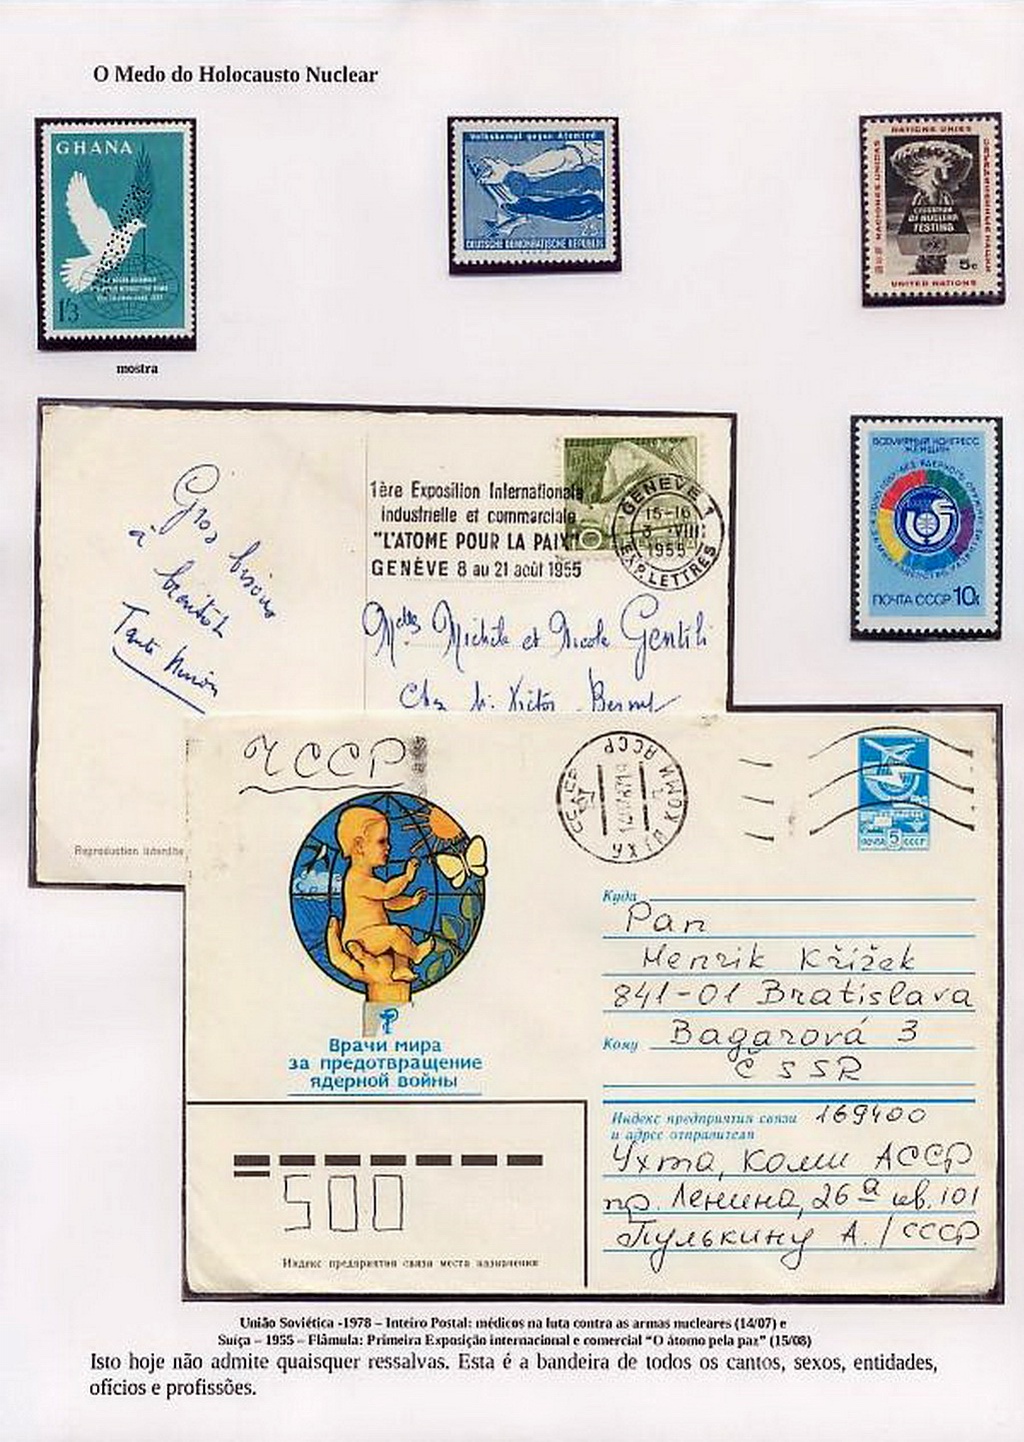 O Medo do Holocausto Nuclear
GHANA
1/3
mostra
Volkskampf gegen Atomtod
25
DEUTSCHE DEMOKRATISCHE REPUBLIK
NATIONS UNIES
NACIONES UNIDAS
CESSATION
OF NUCLEAR
TESTING
5c
UNITED NATIONS
ВСЕМИРНЫЙ КОНГРЕСС
ЖЕНЩИН
ПОЧТА СССР 10к
1ère Exposition Internationale
industrielle et commerciale
"L'ATOME POUR LA PAIX"
GENÈVE 8 au 21 août 1955
GENÈVE 1
15-16
3.VIII
1955
EXP. LETTRES
Gros bisous
à bientôt
Tante
Melles Michèle et Nicole Gentili
Chez Mr. Victor
Reproduction interdite
ЧССР
УХТА КОМИ АССР
ПОЧТА 5 СССР
Врачи мира
за предотвращение
ядерной войны
Куда
Pan
Henrik Křížek
841-01 Bratislava
Кому Bagarová 3
ČSSR
Индекс предприятия связи 169400
и адрес отправителя
Ухта, Коми АССР
пр. Ленина, 26а кв. 101
Пулькину А. / СССР
500
Индекс предприятия связи места назначения
União Soviética -1978 – Inteiro Postal: médicos na luta contra as armas nucleares (14/07) e
Suíça – 1955 – Flâmula: Primeira Exposição internacional e comercial “O átomo pela paz” (15/08)
Isto hoje não admite quaisquer ressalvas. Esta é a bandeira de todos os cantos, sexos, entidades,
ofícios e profissões.